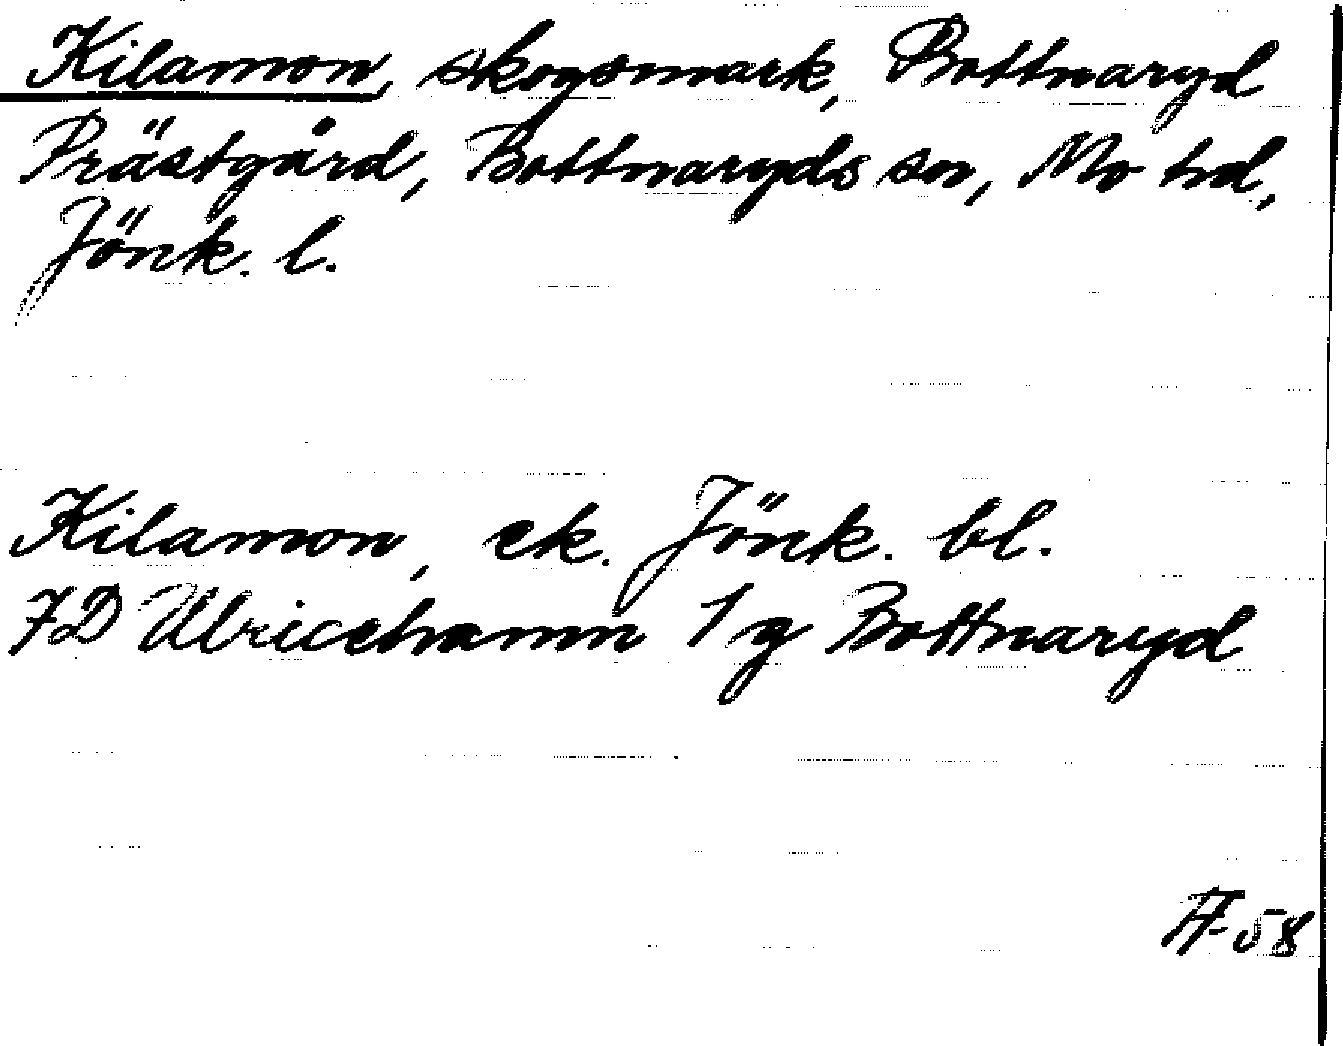 Kilamon, skogsmark, Bottnaryd
Prästgård, Bottnaryds sn, Mo hd,
Jönk. l.
Kilamon, ek. Jönk. bl.
7D Ulricehamn 1g Bottnaryd
AF 58